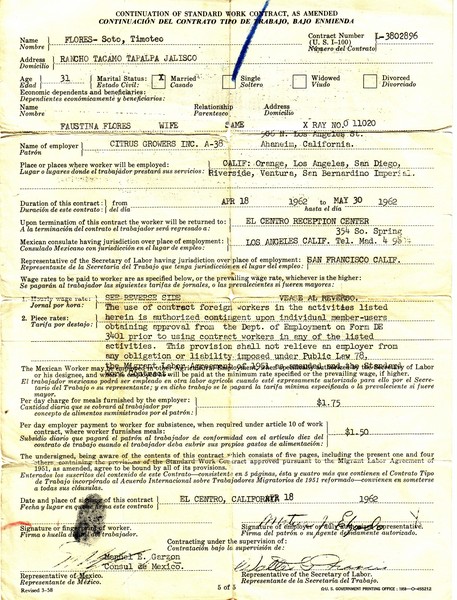 CONTINUATION OF STANDARD WORK CONTRACT, AS AMENDED
CONTINUACIÓN DEL CONTRATO TIPO DE TRABAJO, BAJO ENMIENDA
Name FLORES- Soto, Timoteo Contract Number L-3802896
Nombre (U. S. I-100)
Número del Contrato
Address RANCHO TACAMO TAPALPA JALISCO
Domicilio
Age 31 Marital Status: X Married Single Widowed Divorced
Edad Estado Civil: Casado Soltero Viudo Divorciado
Economic dependents and beneficiaries:
Dependientes económicos y beneficiarios:
Name Relationship Address
Nombre Parentesco Domicilio
FAUSTINA FLORES WIFE SAME X RAY NO. 0 11020
N. Los Angeles St.
Name of employer CITRUS GROWERS INC. A-38 Anaheim, California.
Patrón
Place or places where worker will be employed: CALIF: Orange, Los Angeles, San Diego,
Lugar o lugares donde el trabajador prestará sus servicios: Riverside, Ventura, San Bernardino Imperial.
Duration of this contract: from APR 18 1962 to MAY 30 1962
Duración de este contrato: del día hasta el día
Upon termination of the contract the worker will be returned to: EL CENTRO RECEPTION CENTER
A la terminación del contrato el trabajador será regresado a:
354 So. Spring
Mexican consulate having jurisdiction over place of employment: LOS ANGELES CALIF. Tel. Mad. 4
Consulado Mexicano con jurisdicción en el lugar del empleo:
Representative of the Secretary of Labor having jurisdiction over place of employment: SAN FRANCISCO CALIF.
Representante de la Secretaría del Trabajo que tenga jurisdicción en el lugar del empleo:
Wage rates to be paid to worker are as specified below, or the prevailing wage rate, whichever is the higher:
Se pagarán al trabajador las siguientes tarifas de jornales, o las prevalecientes si fueren mayores:
1. Hourly wage rate: SEE REVERSE SIDE VEASE AL REVERSO.
Jornal por hora:
The use of contract foreign workers in the activities listed
2. Piece rates: herein is authorized contingent upon individual member-users
Tarifa por destajo: obtaining approval from the Dept. of Employment on Form DE
3401 prior to using contract workers in any of the listed
activities. This provision shall not relieve an employer from
any obligation or liability imposed under Public Law 78,
the Migrant Labor Agreement of 1951 as amended and the Standard
Work Contract.
The Mexican Worker may be employed in other Agricultural Employment when specifically authorized by the Secretary of Labor
or his designee, and will be paid at the minimum rate specified or the prevailing wage, if higher.
El trabajador mexicano podrá ser empleado en otra labor agrícola cuando esté expresamente autorizado para ello por el Secretario
del Trabajo o su representante; y en dicho trabajo se le pagará la tarifa mínima especificada o la prevaleciente si fuere
mayor.
Per day charge for meals furnished by the employer: $1.75
Cantidad diaria que se cobrará al trabajador por
concepto de alimentos suministrados por el patrón:
Per day employer payment to worker for subsistence, when required under article 10 of work
contract, where worker furnishes own meals: $1.50
Subsidio diario que pagará al trabajador de conformidad con el artículo diez del
contrato de trabajo cuando el trabajador debe cubrir sus propios gastos de alimentación:
The undersigned, being aware of the contents of this contract which consists of five pages, including the present one and four
others containing the provisions of the Standard Work Contract approved pursuant to the Migrant Labor Agreement of
1951, as amended, agree to be bound by all of its provisions.
Enterados los suscritos del contenido de este Contrato—consistente en 5 páginas, ésta y cuatro más que contienen el Contrato Tipo
de Trabajo incorporado al Acuerdo Internacional sobre Trabajadores Migratorios de 1951 reformado—convienen en someterse
a todas sus cláusulas.
Date and place of signing of this contract EL CENTRO, CALIFORNIA APR 18 1962
Fecha y lugar en que se firma este contrato
Signature or fingerprint of worker. Signature of employer or fully authorized representative.
Firma o huella digital del trabajador. Firma del patrón o su agente debidamente autorizado.
Contracting under the supervision of:
Contratación bajo la supervisión de:
Manuel E. Garzon
Consul de Mexico.
Representative of Mexico. Representative of the Secretary of Labor.
Representante de México. Representante de la Secretaría del Trabajo.
Revised 3-58 5 of 5 U. S. GOVERNMENT PRINTING OFFICE : 1958—O-455212